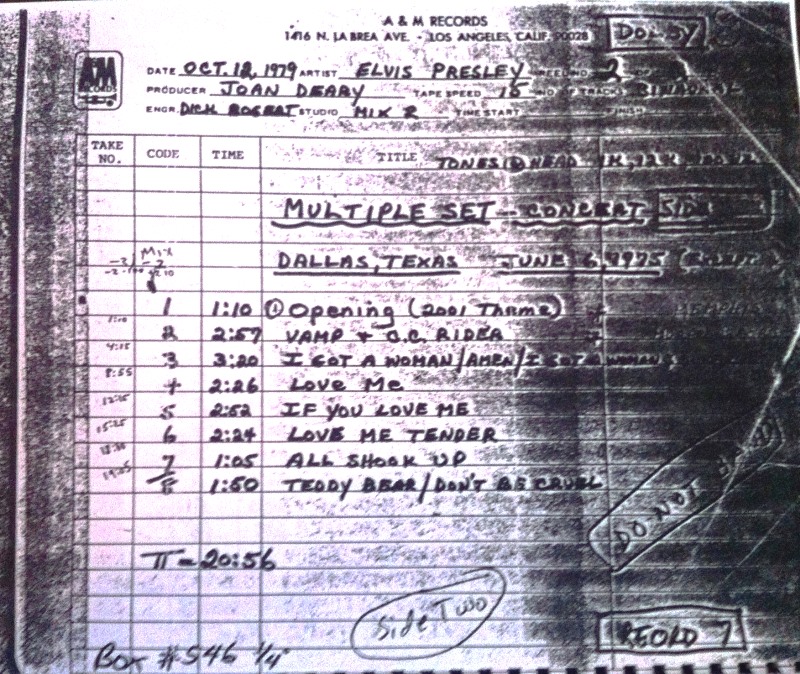 A & M RECORDS
1416 N. LA BREA AVE. - LOS ANGELES, CALIF. 90028
DOLBY
A&M RECORDS
DATE OCT. 12, 1979 ARTIST ELVIS PRESLEY REEL NO. 2
PRODUCER JOAN DEARY TAPE SPEED 15 NO. OF TRACKS BINAURAL
ENGR. DICK BOGERT STUDIO MIX 2 TIME START FINISH
TAKE NO. CODE TIME TITLE TONES @ HEAD 1K, 12K,
MULTIPLE SET - CONCERT SIDE
MIX
DALLAS, TEXAS JUNE 6, 1975 (EXCEPT
1 1:10 ① Opening (2001 Theme)
1:10 2 2:57 VAMP + C.C. RIDER
4:15 3 3:20 I GOT A WOMAN/AMEN/I GOT A WOMAN
8:55 4 2:26 LOVE ME
5 2:52 IF YOU LOVE ME
6 2:24 LOVE ME TENDER
7 1:05 ALL SHOOK UP
8 1:50 TEDDY BEAR/DON'T BE CRUEL
DO NOT
TT = 20:56
Side Two
RECORD 7
Box #546 1/4"